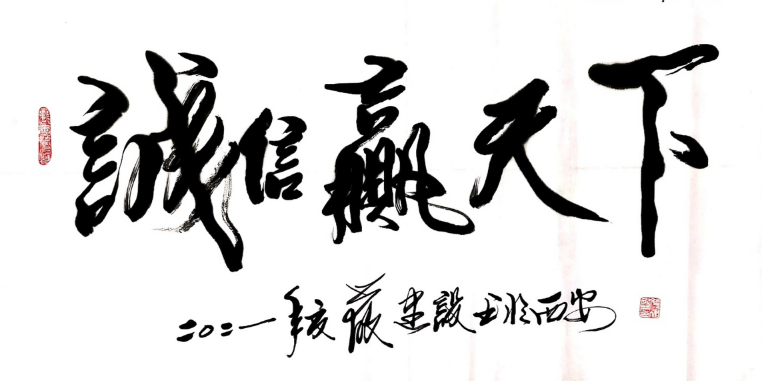 誠信贏天下
二〇二一年夏建設书於西安